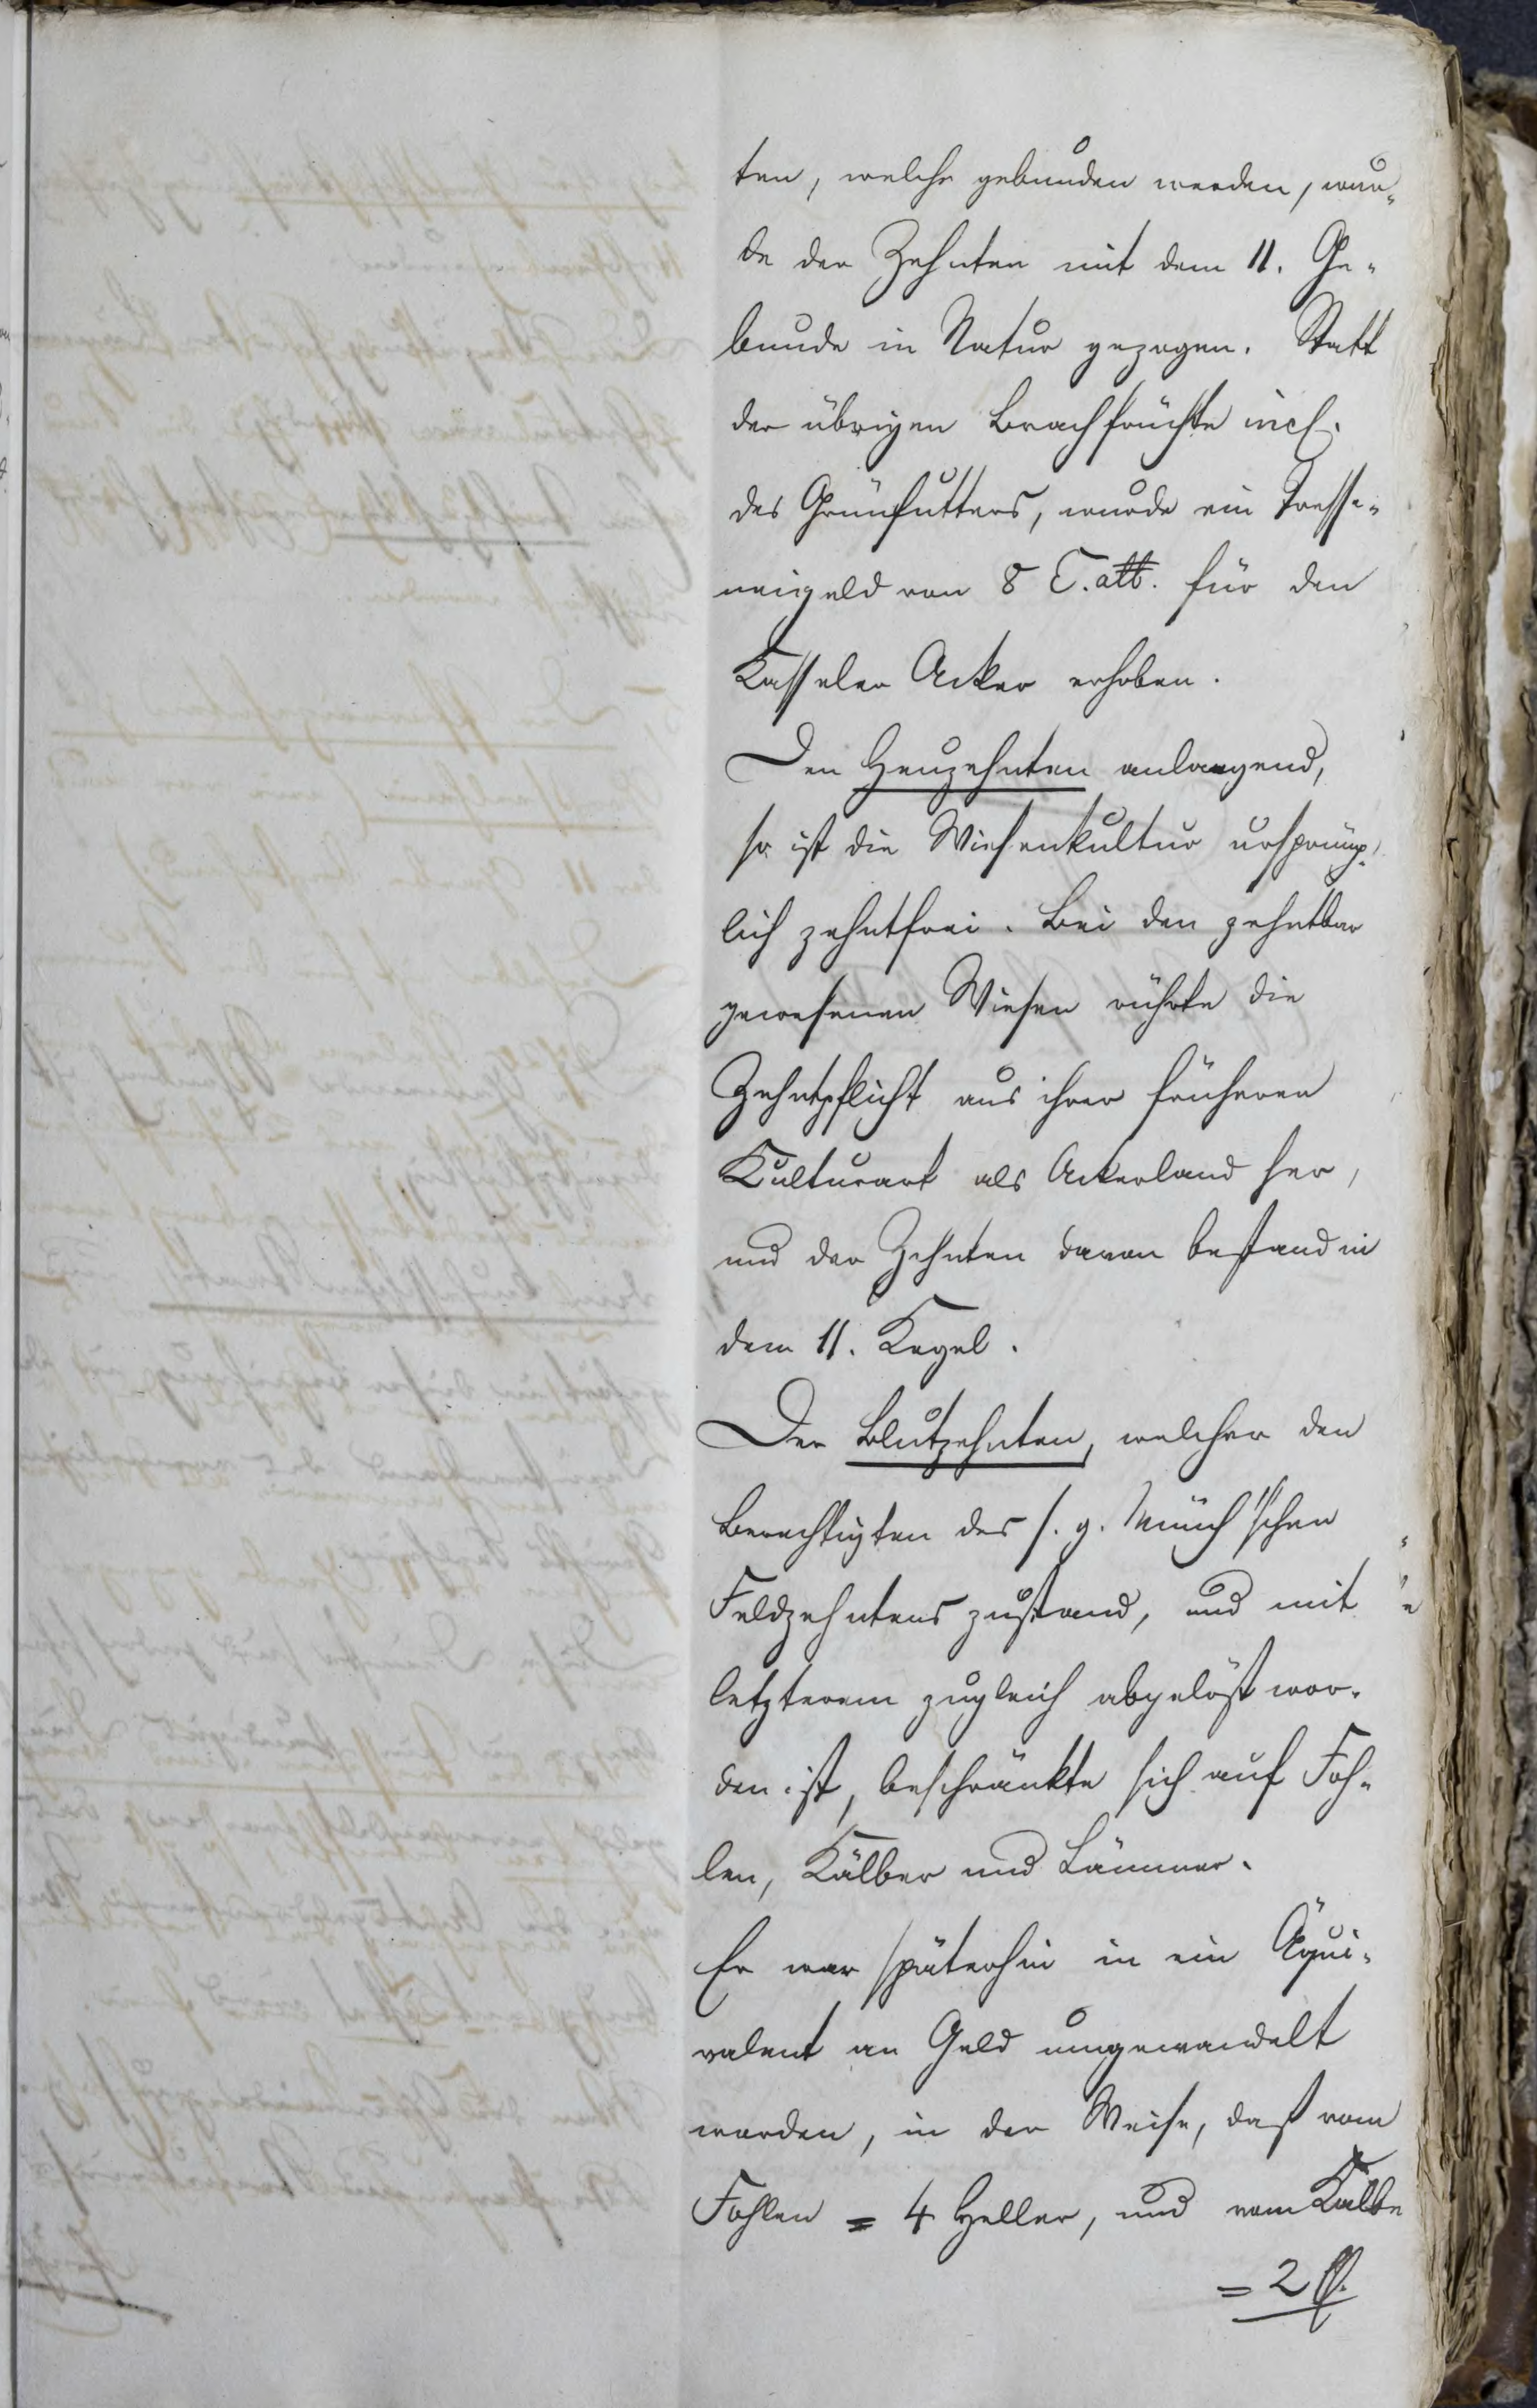 ten, welche gebunden werden, wur-
de der Zehnten mit dem 11. Ge-
bunde in Natur gezogen. Statt
der übrigen Brachfrüchte incl.
des Grünfutters, wurde ein
von 8 für den
Kasseler Acker erhoben.
Den Heuzehnten anlangend,
so ist die Wiesenkultur ursprüng-
lich zehntfrei. Bei den zehntbar
gewesenen Wiesen rührte die
Zehntpflicht aus ihrer früheren
Kulturart als Ackerland her,
und der Zehnten davon bestand in
dem 11. Kegel.
Der Blutzehnten, welcher den
Berechtigten des s. g. Münch'schen
Feldzehntens zustand, und mit
letzterem zugleich abgelöst wor-
den ist, beschränkte sich auf Foh-
len, Kälber und Lämmer.
Er war späterhin in ein Äqui-
valent an Geld umgewandelt
worden, in der Weise, daß vom
Fohlen = 4 Heller, und vom Kalbe
= 2